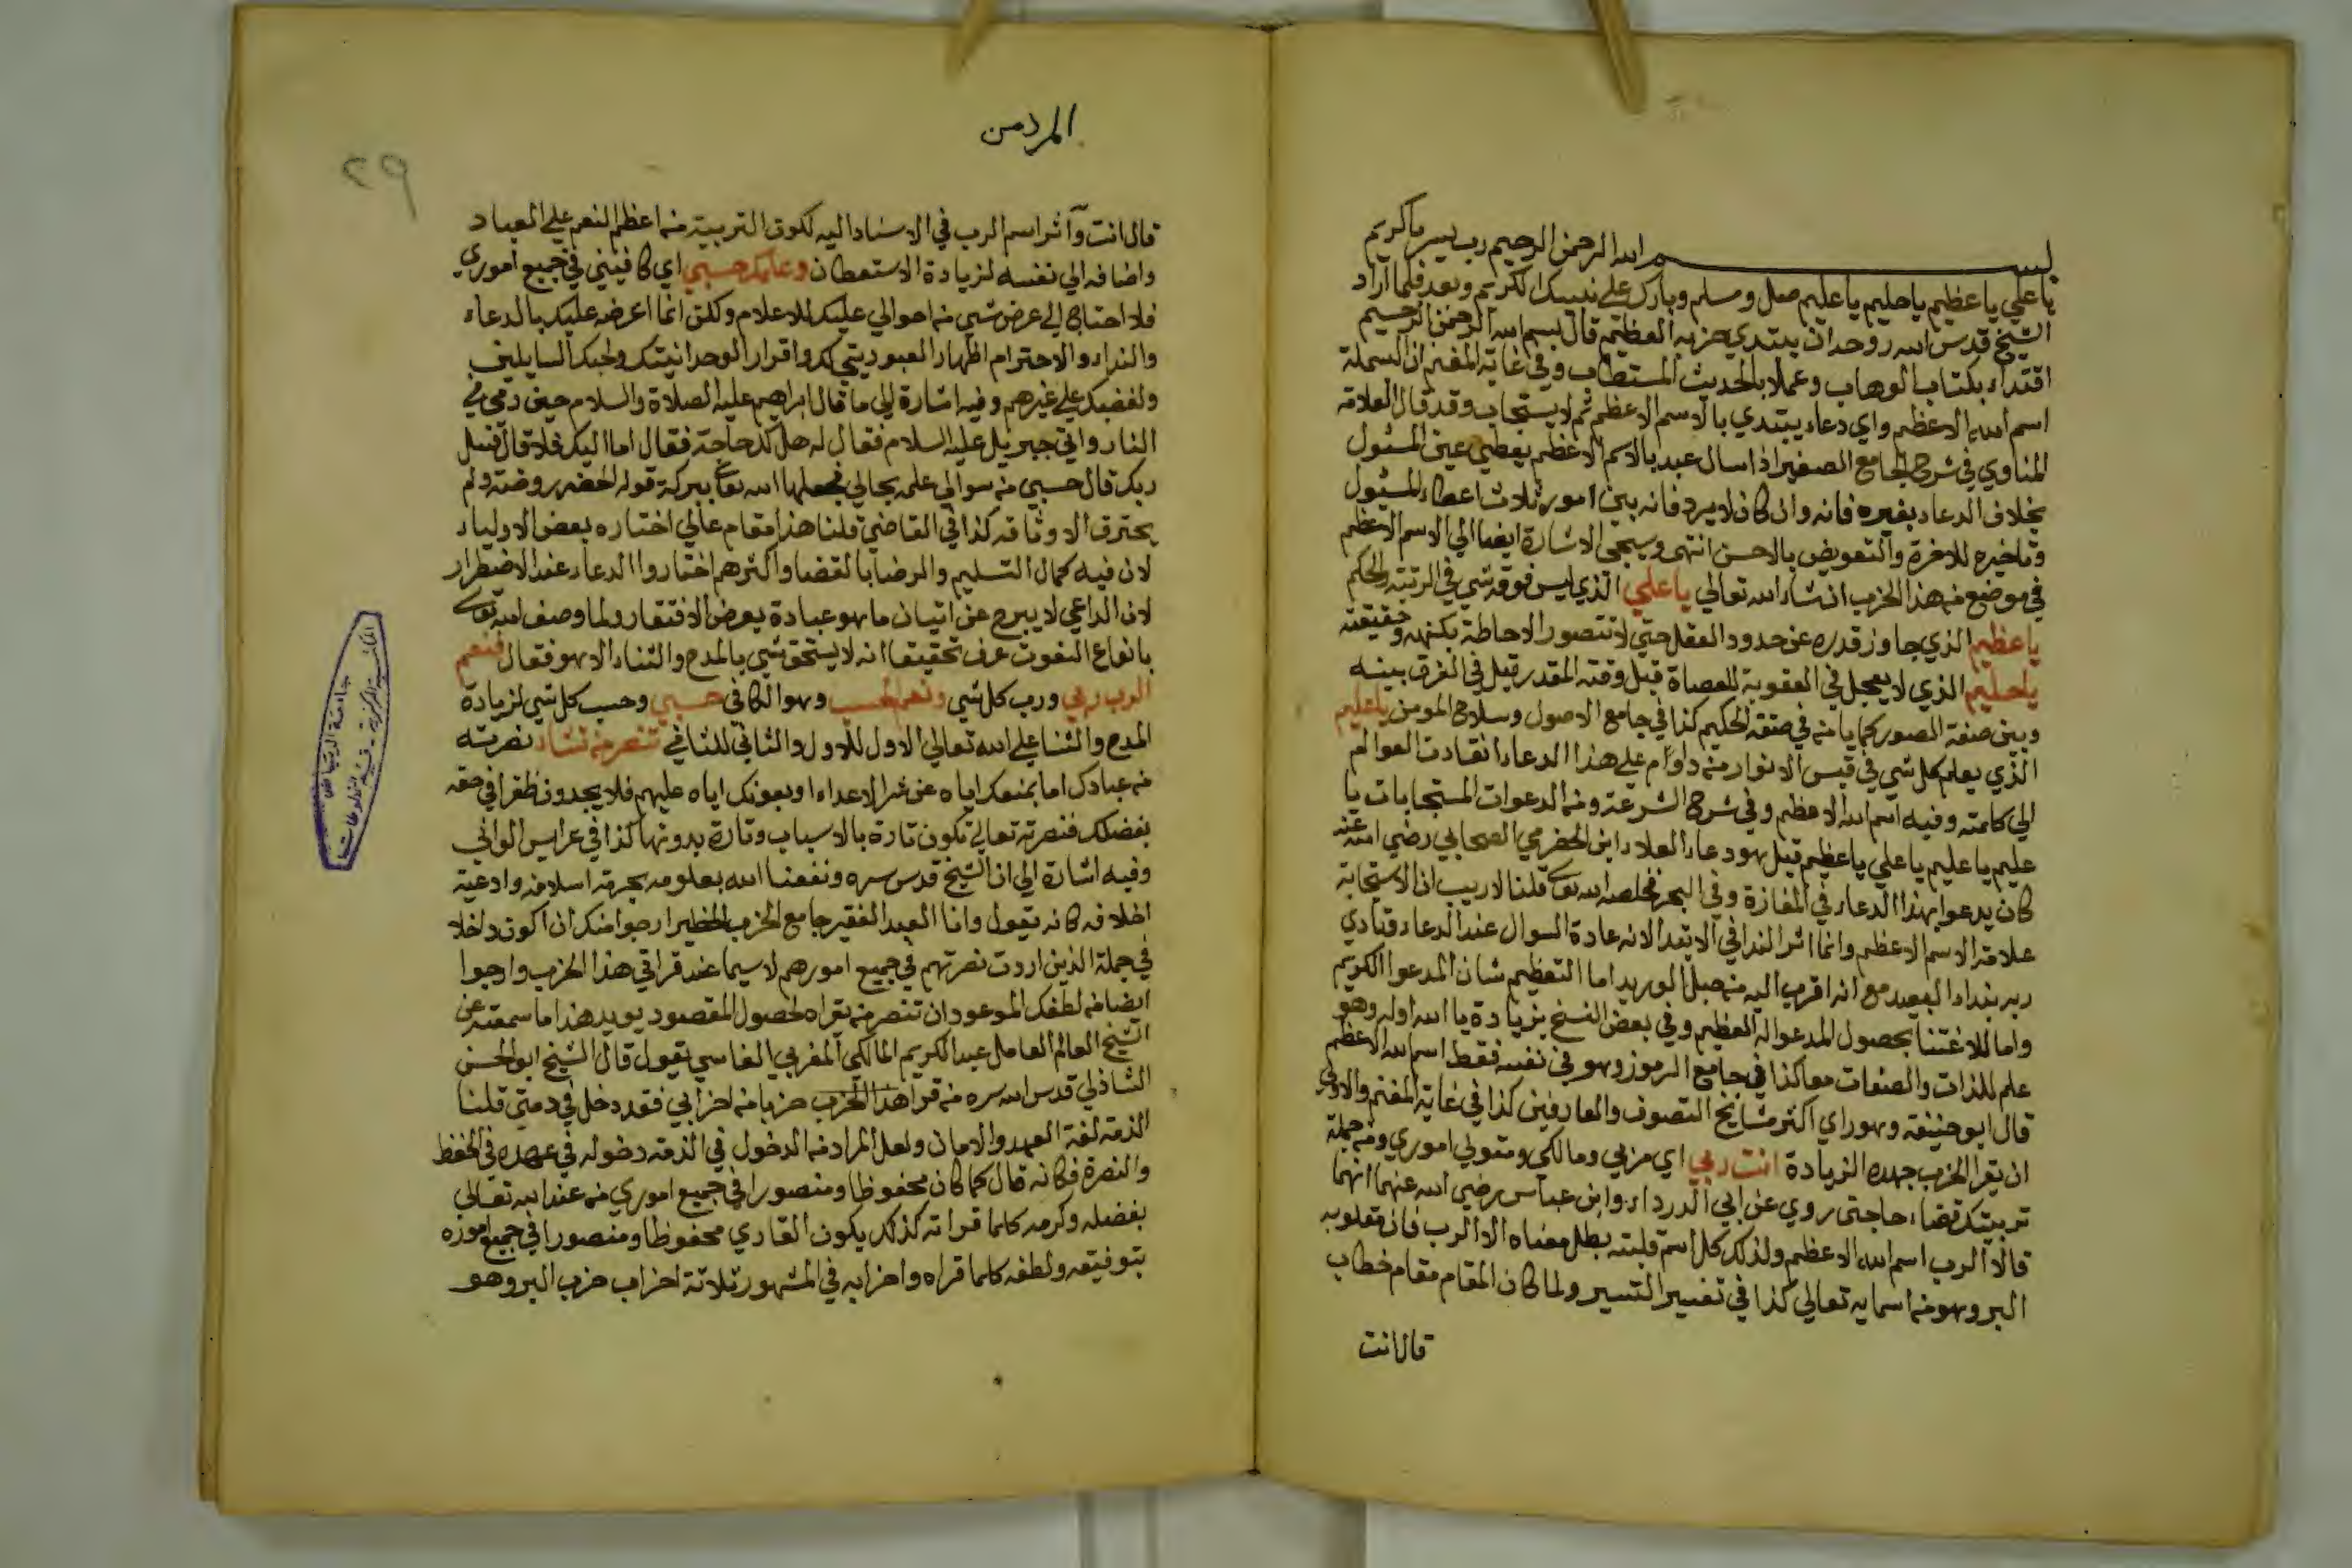 بسم الله الرحمن الرحيم رب يسر يا كريم
يا علي يا عظيم يا حليم يا عليم صل وسلم وبارك على نبيك الكريم وبعد فلما اراد
الشيخ قدس الله روحه ان يبتدي حزبه العظيم قال بسم الله الرحمن الرحيم
اقتداء بكتاب الوهاب وعملا بالحديث المستطاب وفي غاية المغنم ان البسملة
اسم الله الاعظم واي دعاء يبتدي بالاسم الاعظم ثم لا يستجاب وقد قال العلامة
المناوي في شرح الجامع الصغير اذا سال عبد بالاسم الاعظم يعطي عين المسئول
بخلاف الدعاء بغيره فانه وان كان لا يرد فانه بين امور ثلاث اعطاء المسئول
وتاخيره للاخرة والتعويض بالاحسن انتهى وسيجي الاشارة ايضا الي الاسم الاعظم
في موضع من هذا الحزب ان شاء الله تعالي يا علي الذي ليس فوقه شي في الرتبة والحكم
يا عظيم الذي جاوز قدره عن حدود العقل حتي لا تتصور الاحاطة بكنهه وحقيقته
يا حليم الذي لا يعجل في العقوبة للعصاة قبل وقته المقدر قيل في الفرق بينه
وبين صفة الصبور كما يامنه في صفة الحكيم كذا في جامع الاصول وسلاح المومن يا عليم
الذي يعلم كل شي في قبس الانوار من داوم على هذا الدعاء انقادت العوالم
الي كلمته وفيه اسم الله الاعظم وفي شرح الشرعة ومن الدعوات المستجابات يا
عليم يا عليم يا علي يا عظيم قيل هو دعاء العلاء ابن الحضرمي الصحابي رضي الله عنه
كان يدعوا بهذا الدعاء في المفازة وفي البحر فخلصه الله تعالى قلنا لا ريب ان الاستجابة
علامة الاسم الاعظم وانما اثر الندا في الابتدا لانه عادة السوال عند الدعاء فنادي
ربه بنداء البعيد مع انه اقرب اليه من حبل الوريد اما التعظيم شان المدعوا الكريم
واما للاعتنا بحصول المدعو له العظيم وفي بعض النسخ بزيادة يا الله اوله وهو
علم للذات والصفات معا كذا في جامع الرموز وهو في نفسه فقط اسم الله الاعظم
قال ابو حنيفة وهو راي اكثر مشايخ التصوف والعارفين كذا في غاية المغنم والاولي
ان يقرا الحزب بهذه الزيادة انت ربي اي مربي ومالكي ومتولي اموري ومن جملة
تربيتك قضاء حاجتي روي عن ابي الدرداء وابن عباس رضي الله عنهما انهما
قالا الرب اسم الله الاعظم ولذلك كل اسم قلبته بطل معناه الا الرب فان مقلوبه
البر وهو من اسمايه تعالي كذا في تفسير التيسير ولما كان المقام مقام خطاب
قال انت
المرذمن
٢٩
قال انت وآثر اسم الرب في الاسناد اليه لكون التربية من اعظم النعم علي العباد
واضافه الي نفسه لزيادة الاستعطاف وعلمك حسبي اي كافيني في جميع اموري
فلا احتاج الي عرض شي من احوالي عليك للاعلام ولكن انما اعرضه عليك بالدعاء
والنداء والاحترام اظهار العبوديتي لك واقرار الوحدانيتك ولحبك السايلين
ولغضبك علي غيرهم وفيه اشارة الي ما قال ابراهيم عليه الصلاة والسلام حين رمي في
النار واتي جبريل عليه السلام فقال له هل لك حاجة فقال اما اليك فلا قال فسل
ربك قال حسبي من سوالي علمه بحالي فجعلها الله تعالى ببركة قوله الخضر روضة ولم
يحترق الا وثاقه كذا في القاضي قلنا هذا مقام عالي اختاره بعض الاولياء
لان فيه كمال التسليم والرضا بالقضا واكثرهم اختاروا الدعاء عند الاضطرار
لان الداعي لا يبرح عن اتيان ما هو عبادة بعرض الافتقار ولما وصف الله تعالى
بانواع النعوت عرف تحقيقا انه لا يستحق شي بالمدح والثناء الا هو فقال فنعم
الرب ربي ورب كل شي ونعم الحسب وهو الكافي حسبي وحسب كل شي لزيادة
المدح والثنا علي الله تعالي الاول للاول والثاني للثاني تنصر من تشاء نصرته
من عبادك اما بمنعك اياه عن شر الاعداء او بعونك اياه عليهم فلا يجدون ظفرا في حقه
بفضلك فنصرته تعالي تكون تارة بالاسباب وتارة بدونها كذا في عرايس الواني
وفيه اشارة الي ان الشيخ قدس سره ونفعنا الله بعلومه بحرمة اسلافه وادعية
اخلافه كانه يقول وانا العبد الفقير جامع الحزب الخطير ارجوا منك ان اكون داخلا
في جملة الذين اردت نصرتهم في جميع امورهم لا سيما عند قراتي هذا الحزب وارجوا
ايضا من لطفك الموعود ان تنصر من يقراه لحصول المقصود يويد هذا ما سمعته عن
الشيخ العالم العامل عبد الكريم المالكي المغربي الفاسي يقول قال الشيخ ابو الحسن
الشاذلي قدس الله سره من قرا هذا الحزب حزبا من احزابي فقد دخل في ذمتي قلنا
الذمة لغة العهد والامان ولعل المراد من الدخول في الذمة دخوله في عهده في الحفظ
والنصرة فكانه قال كما كان محفوظا ومنصورا في جميع اموري من عند الله تعالي
بفضله وكرمه كلما قراته كذلك يكون القاري محفوظا ومنصورا في جميع اموره
بتوفيقه ولطفه كلما قراه واحزابه في المشهور ثلاثة احزاب حزب البر وهو
جامعة الرياض